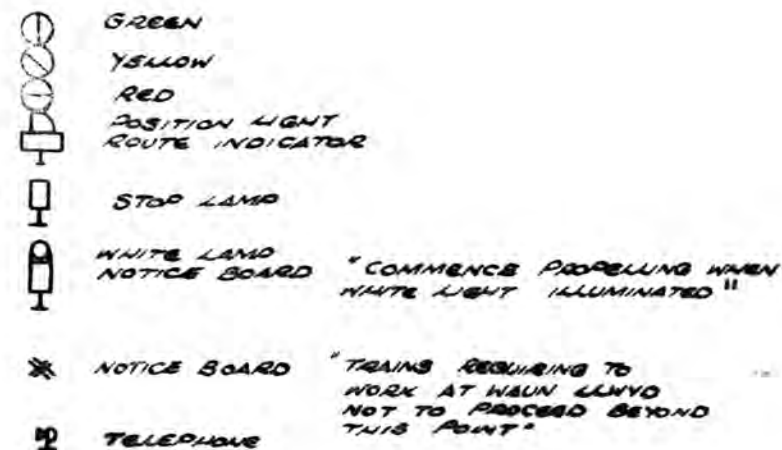 GREEN
YELLOW
RED
POSITION LIGHT
ROUTE INDICATOR
STOP LAMP
WHITE LAMP
NOTICE BOARD "COMMENCE PROPELLING WHEN
WHITE LIGHT ILLUMINATED"
NOTICE BOARD "TRAINS REQUIRING TO
WORK AT WAUN LLWYD
NOT TO PROCEED BEYOND
THIS POINT"
TELEPHONE